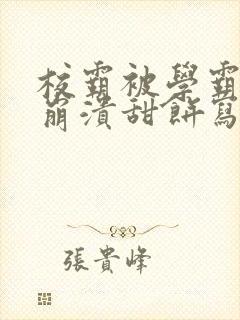 校霸被學霸
崩潰甜餅寫
張貴峰